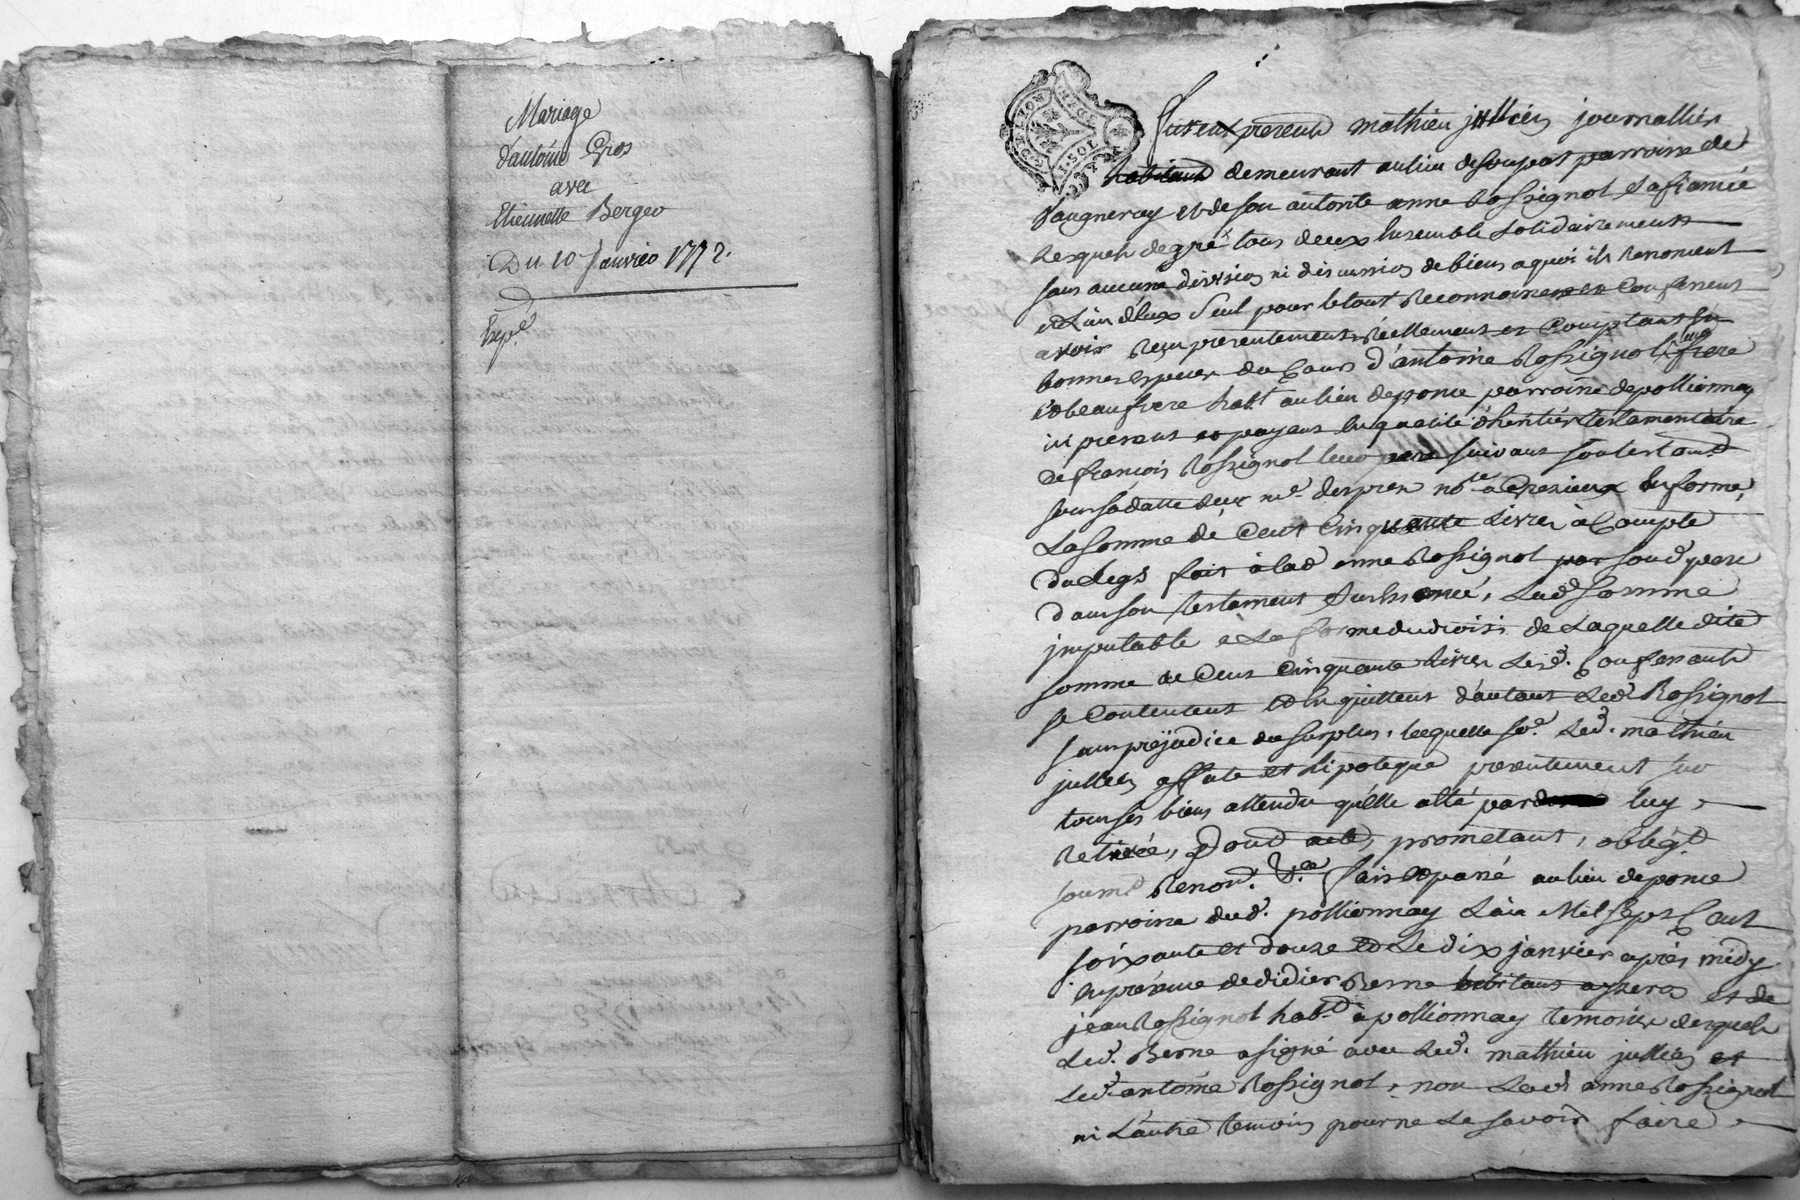 Mariage
d'antoine Gros
avec
Etiennette Berger
Du 10 Janvier 1772.
Exp.é
Furent presents mathieu jullien journallier
habitant demeurant au lieu de soupat parroisse de
Vaugneray et de son autorité anne Rossignol sa fiancée
lesquels de gré tous deux Ensemble solidairement
sans aucune division ni discussion de biens a quoi ils renoncent
et L'un d'eux seul pour le tout Reconnoissent et Confessent
avoir Reçu presentement Réellement et Comptant En
bonnes Especes du Cours d'antoine Rossignol leur frere
et beaufrere hab.t au lieu de ponce parroisse de pollionnay
ici present et payant En qualité d'heritier testamentaire
de françois Rossignol leur pere suivant son testam.t
sous sa datte Reçu m.e Despres no.re a Grezieux En forme,
La somme de Cent Cinquante Livres à Compte
du Legs fait à lad anne Rossignol par sond pere
dans son testament susénoncé, Lad somme
imputable a La forme du droit; de Laquelle dite
somme de Cent Cinquante livres Lesd. Confessants
se Contentent Et En quittent d'autant Led. Rossignol
sans prejudice du surplus, laquelle s.e Led. mathieu
jullien affecte et hipoteque presentement sur
tous ses biens attendu qu'elle a été par luy
Retirée, Dont acte, promettant, obligt
soumt Renonc. &.a fait et passé au lieu de ponce
parroisse dud. pollionnay L'an Mil sept Cent
soixante et douze et Le dix janvier après midy
En presence de didier Berne habitant a yzeron et de
jean Rossignol hab.t à pollionnay temoins desquels
Led. Berne a signé avec Led. mathieu jullien et
Led. antoine Rossignol, non Lad anne Rossignol
ni L'autre temoin pour ne Le savoir faire